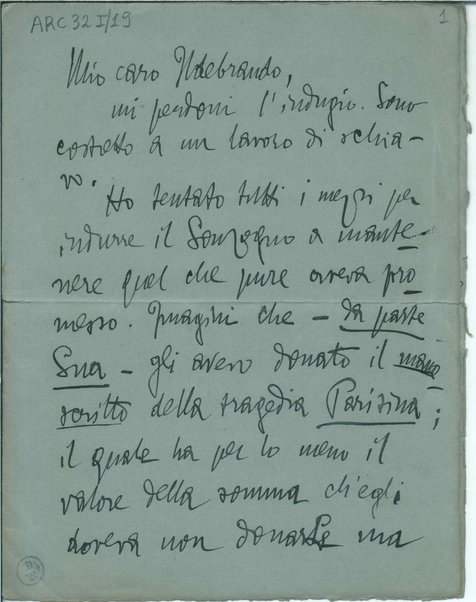 ARC 32 I/19
1
Mio caro Ildebrando,
mi perdoni l'indugio. Sono
costretto a un lavoro di schia-
vo.
Ho tentato tutti i mezzi per
indurre il Sonzogno a mante-
nere quel che pure aveva pro-
messo. Imagini che – da parte
Sua – gli avevo donato il mano
scritto della tragedia Parisina;
il quale ha per lo meno il
valore della somma ch'egli
doveva non donarLe ma